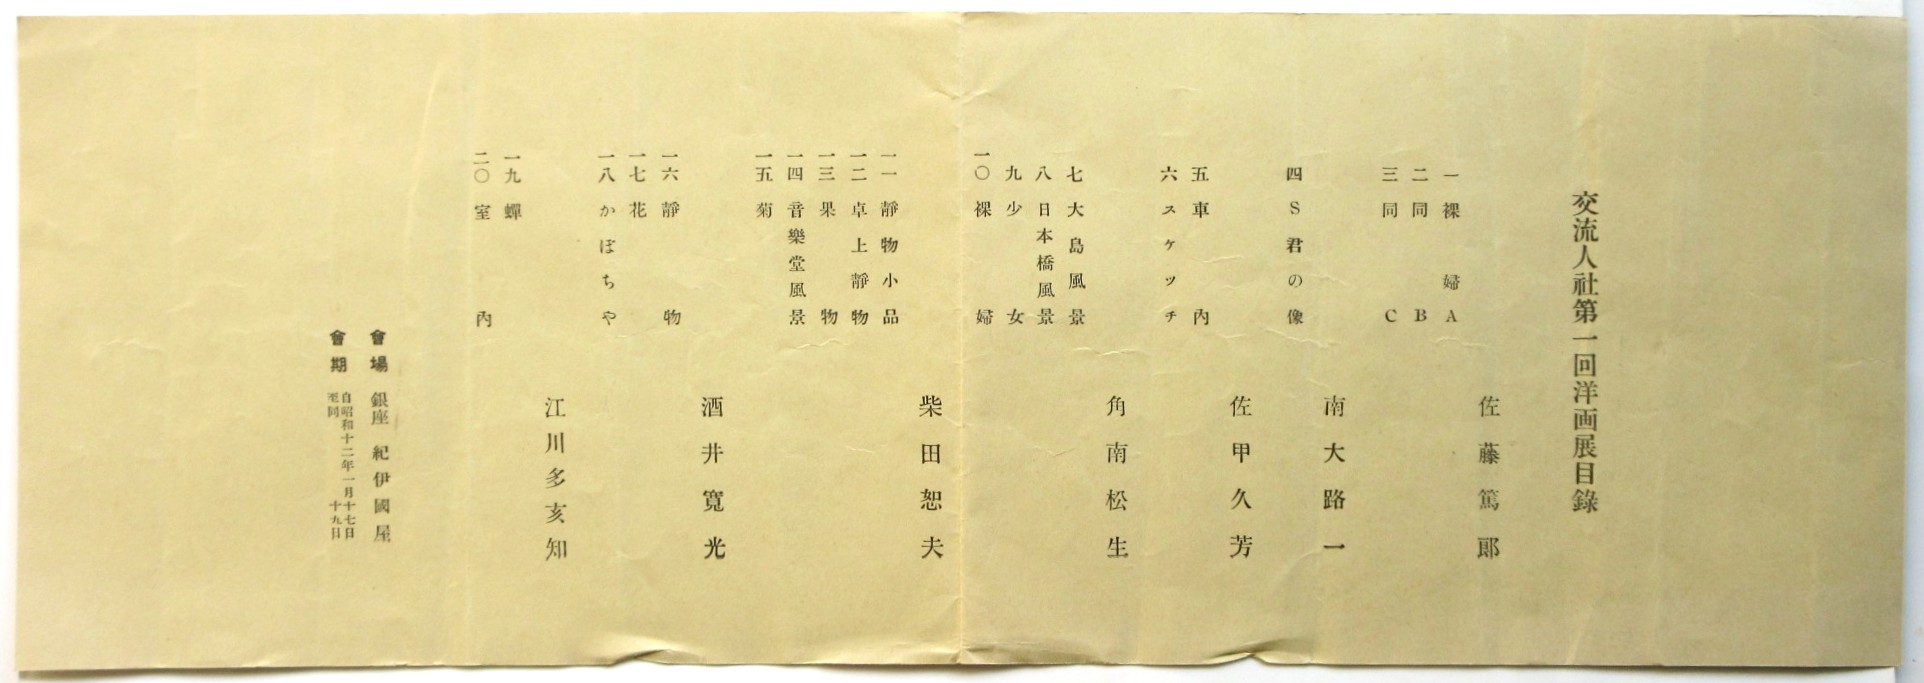 交流人社第一回洋画展目錄
佐藤篤郎
一 裸婦 A
二 同 B
三 同 C
南大路一
四 S君の像
佐甲久芳
五 車內
六 スケッチ
角南松生
七 大島風景
八 日本橋風景
九 少女
一〇 裸婦
柴田恕夫
一一 靜物小品
一二 卓上靜物
一三 果物
一四 音樂堂風景
一五 菊
酒井寬光
一六 靜物
一七 花
一八 かぼちや
江川多亥知
一九 蟬
二〇 室內
會場 銀座 紀伊國屋
會期 自昭和十二年一月十七日
至同 十九日